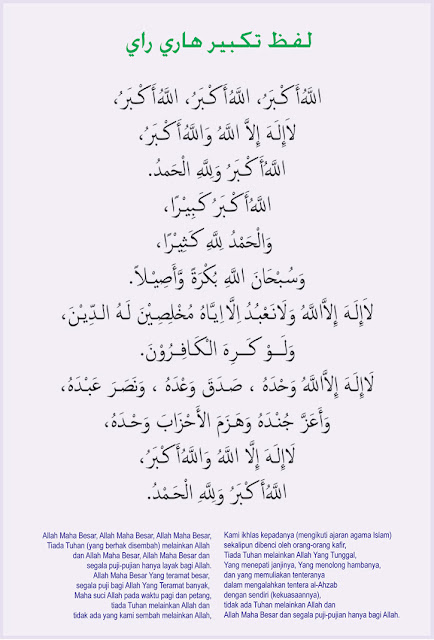 لفظ تكبير هاري راي
اللَّهُ أَكْبَرُ، اللَّهُ أَكْبَرُ، اللَّهُ أَكْبَرُ،
لاَإِلَهَ إِلاَّ اللَّهُ وَاللَّهُ أَكْبَرُ،
اللَّهُ أَكْبَرُ وَلِلَّهِ الْحَمدُ.
اللَّهُ أَكْبَرُ كَبِيْرًا،
وَالْحَمْدُ لِلَّهِ كَثِيْرًا،
وَسُبْحَانَ اللَّهِ بُكْرَةً وَّأَصِيْلاً.
لاَإِلَهَ إِلاَّاللَّهُ وَلاَنَعْبُدُ اِلَّا اِيَّاهُ مُخْلِصِيْنَ لَهُ الدِّيْنَ،
وَلَوْ كَرِهَ الْكَافِرُوْنَ.
لاَإِلَهَ إِلاَّاللَّهُ وَحْدَهُ ، صَدَقَ وَعْدَهُ ، وَنَصَرَ عَبْدَهُ،
وَأَعَزَّ جُنْدَهُ وَهَزَمَ الأَحْزَابَ وَحْدَهُ،
لاَإِلَهَ إِلَّا اللَّهُ وَاللَّهُ أَكْبَرُ،
اللَّهُ أَكْبَرُ وَلِلَّهِ الْحَمْدُ.
Allah Maha Besar, Allah Maha Besar, Allah Maha Besar,
Tiada Tuhan (yang berhak disembah) melainkan Allah
dan Allah Maha Besar, Allah Maha Besar dan
segala puji-pujian hanya layak bagi Allah.
Allah Maha Besar Yang teramat besar,
segala puji bagi Allah Yang Teramat banyak,
Maha suci Allah pada waktu pagi dan petang,
tiada Tuhan melainkan Allah dan
tidak ada yang kami sembah melainkan Allah,
Kami ikhlas kepadanya (mengikuti ajaran agama Islam)
sekalipun dibenci oleh orang-orang kafir,
Tiada Tuhan melainkan Allah Yang Tunggal,
Yang menepati janjinya, Yang menolong hambanya,
dan yang memuliakan tenteranya
dalam mengalahkan tentera al-Ahzab
dengan sendiri (kekuasaannya),
tidak ada Tuhan melainkan Allah dan
Allah Maha Besar dan segala puji-pujian hanya bagi Allah.